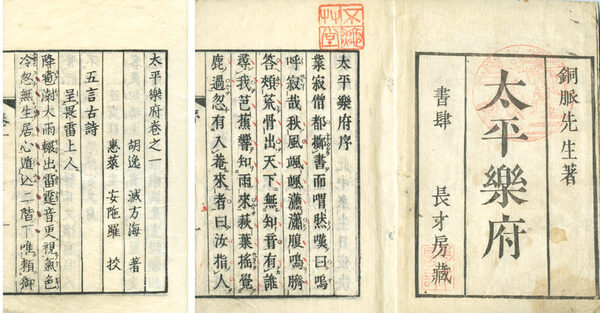 銅脈先生著
太平樂府
書肆 長才房藏
太平樂府序
葉寂僧都擲書而喟然嘆曰嗚
呼寂哉秋風颯颯瀟瀟腹嗚臍
答頬荒骨出天下無知音有誰
尋我芭蕉響知雨來萩葉搖覺
鹿過忽有入菴來者曰汝指人
序
太平樂府卷之一
胡逸 滅方海 著
惠萊 安陀羅 挍
五言古詩
呈畏雷上人
降雹澍大雨輙出雷霆音更視氣色
冷忽無生居心遁込二階下唯頼御